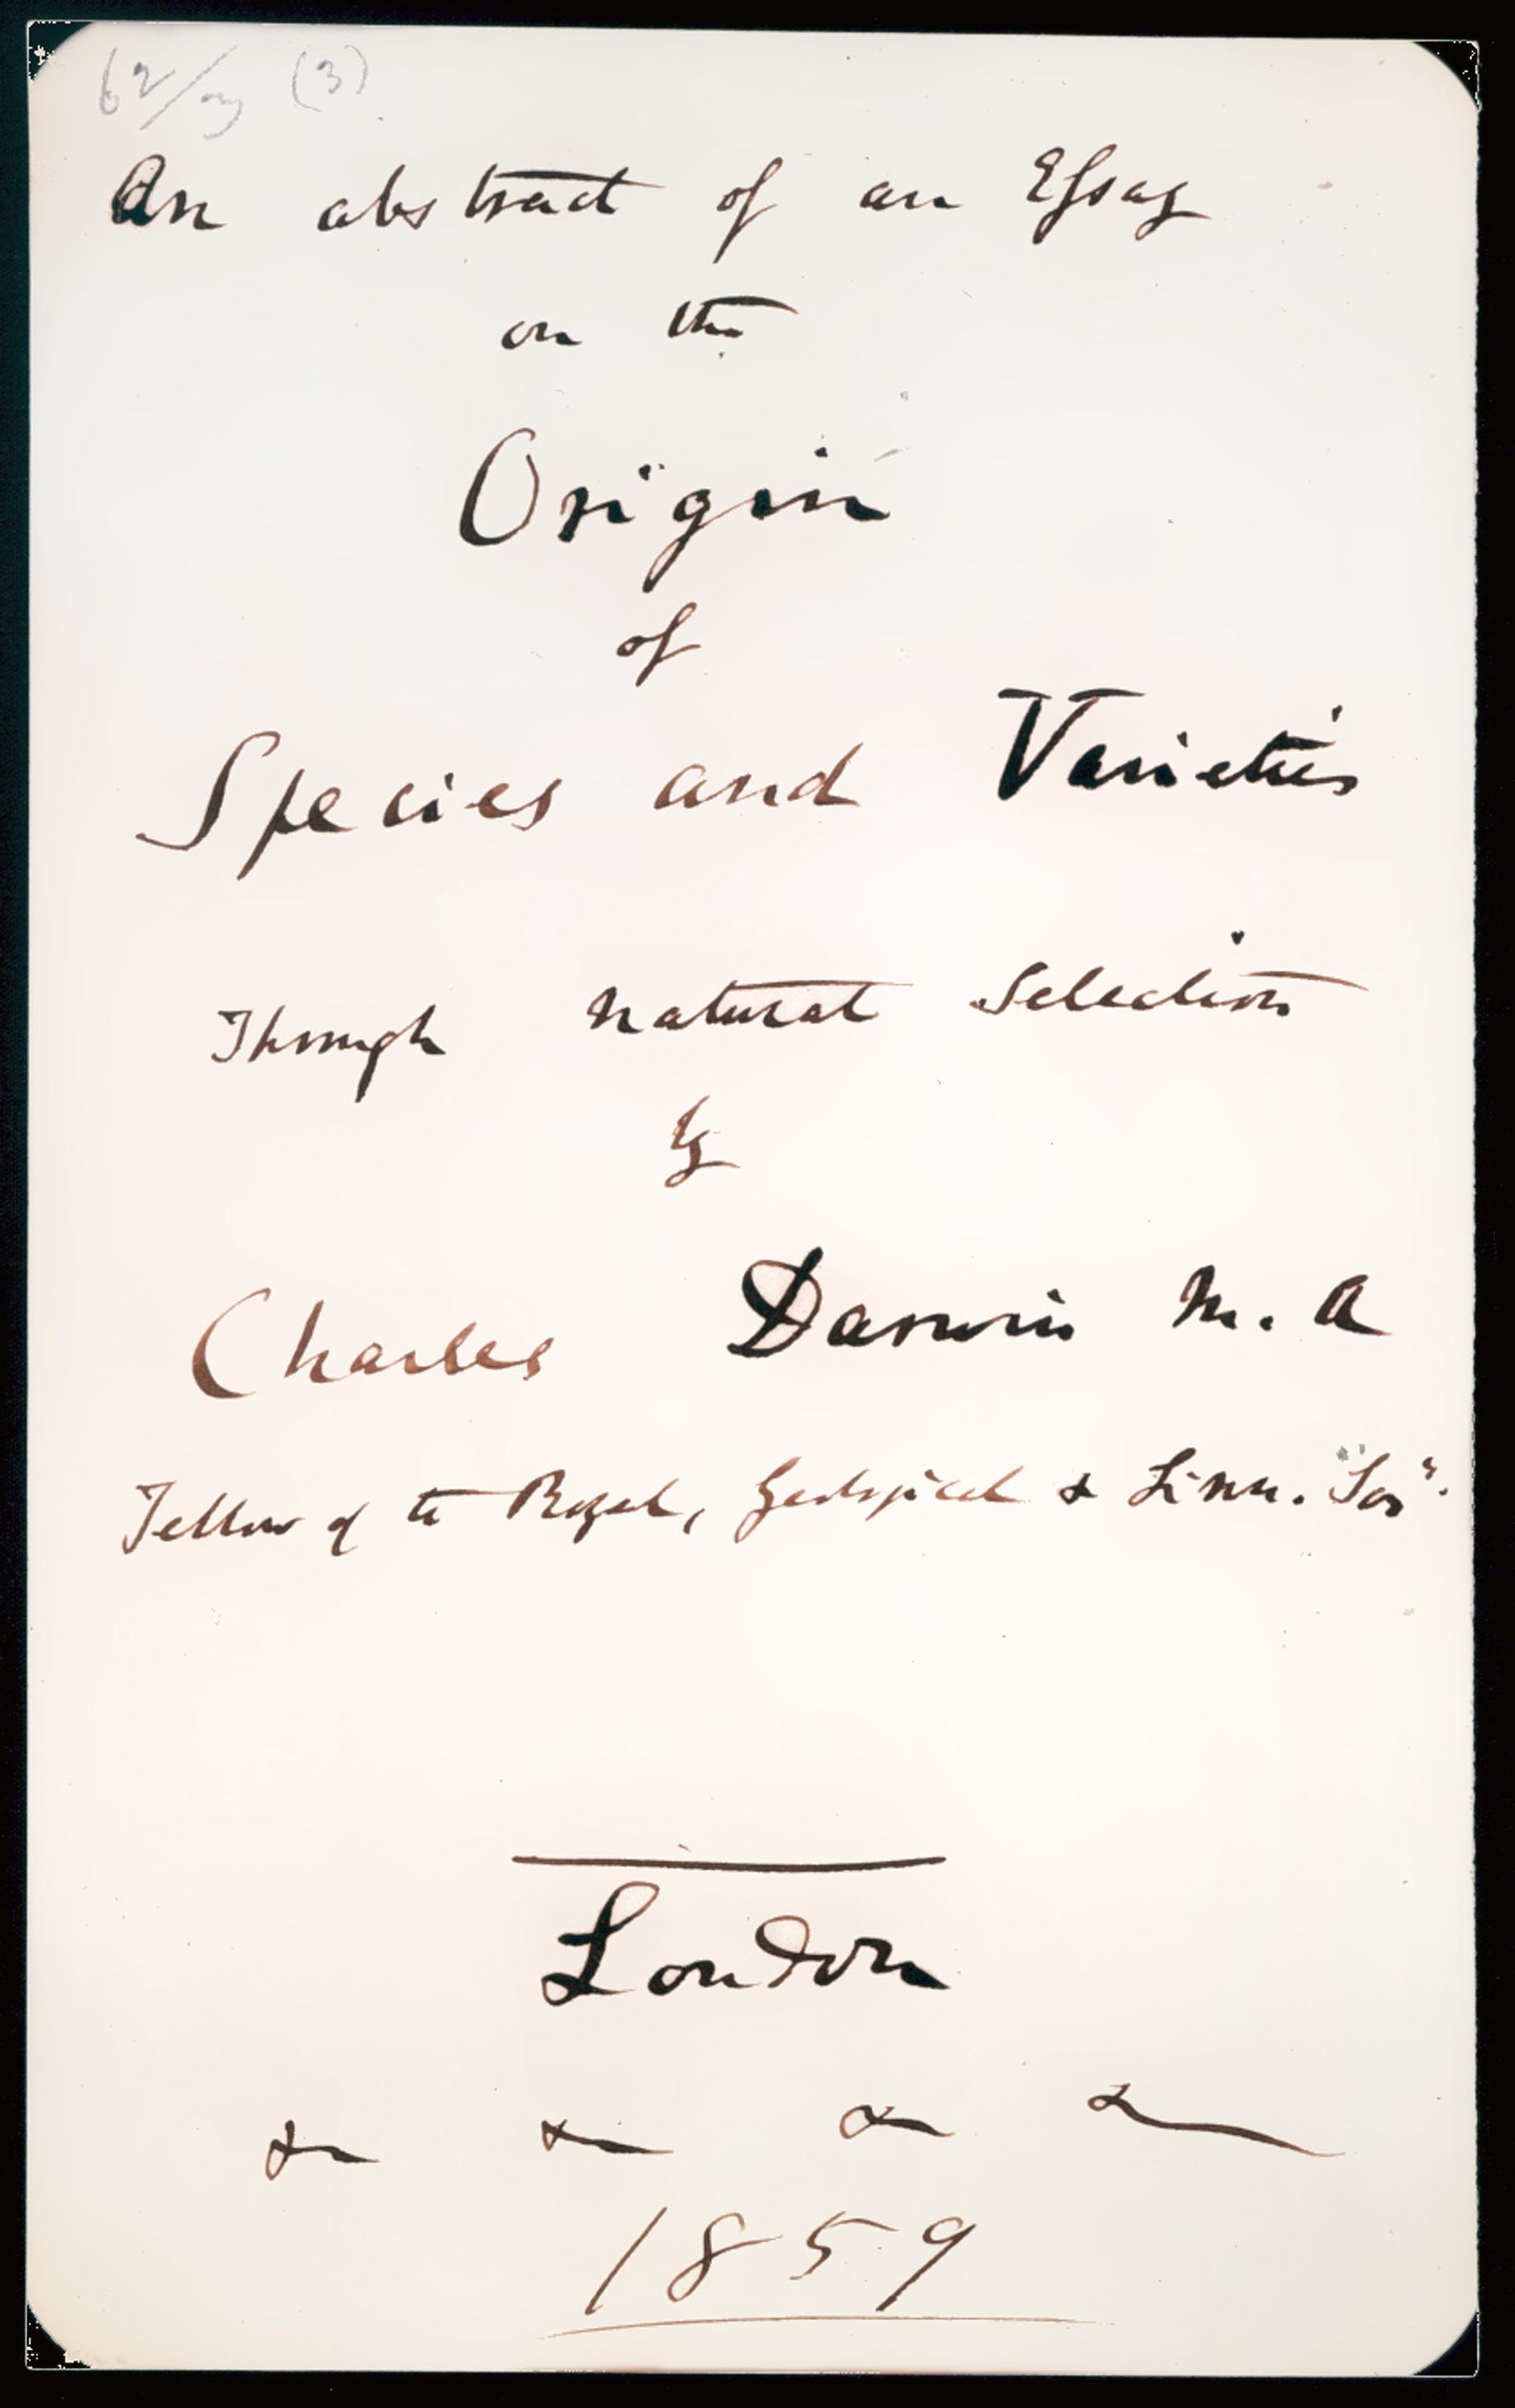 (3)
An abstract of an Essay
on the
Origin
of
Species and Varieties
Through natural selection
by
Charles Darwin M. A
Fellow of the Royal, Geological & Linn. Soc.
London
& & & &
1859